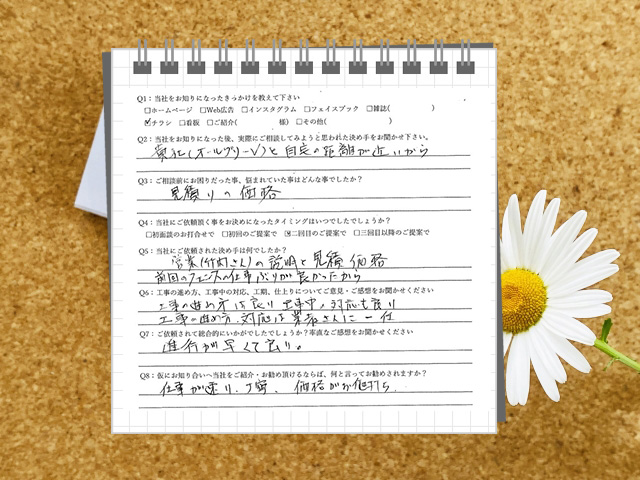 Q1：当社をお知りになったきっかけを教えて下さい
□ホームページ □Web広告 □インスタグラム □フェイスブック □雑誌( )
☑チラシ □看板 □ご紹介( 様) □その他( )
Q2：当社をお知りになった後、実際にご相談してみようと思われた決め手をお聞かせ下さい。
貴社(オールグリーン)と自宅の距離が近いから
Q3：ご相談前にお困りだった事、悩まれていた事はどんな事でしたか？
見積りの価格
Q4：当社にご依頼頂く事をお決めになったタイミングはいつでしたでしょうか？
□初面談のお打合せで □初回のご提案で ☒二回目のご提案で □三回目以降のご提案で
Q5：当社にご依頼された決め手は何でしたか？
営業(竹灯さん)の説明と見積価格
前回のフェンスの仕事ぶりが良かったから
Q6：工事の進め方、工事中の対応、工期、仕上りについてご意見・ご感想をお聞かせください
工事の進め方は良り 工事中の対応も良り
工事の進め方、対応は業者さんに一任
Q7：ご依頼されて総合的にいかがでしたでしょうか？率直なご感想をお聞かせください
進行が早くて良り。
Q8：仮にお知り合いへ当社をご紹介・お勧め頂けるならば、何と言ってお勧めされますか？
仕事が速り、丁寧、価格がお値打ち